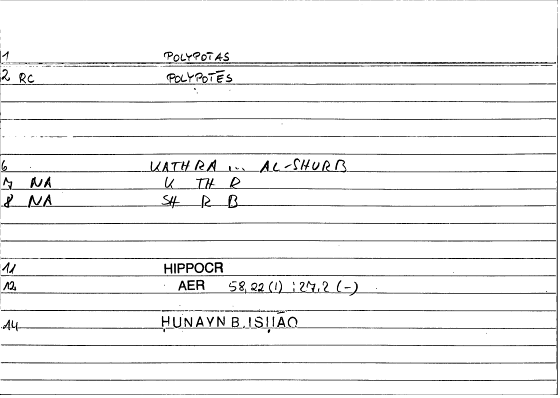 1 POLYPOTAS
2 RC POLYPOTĒS
6 KATHRA ... AL-SHURB
7 NA K TH R
8 NA SH R B
11 HIPPOCR
12 AER 58,22 (1) : 27,2 (-)
14 ḤUNAYN B. ISḤĀQ